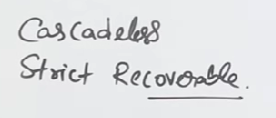 Cascadeless
Strict Recoverable.